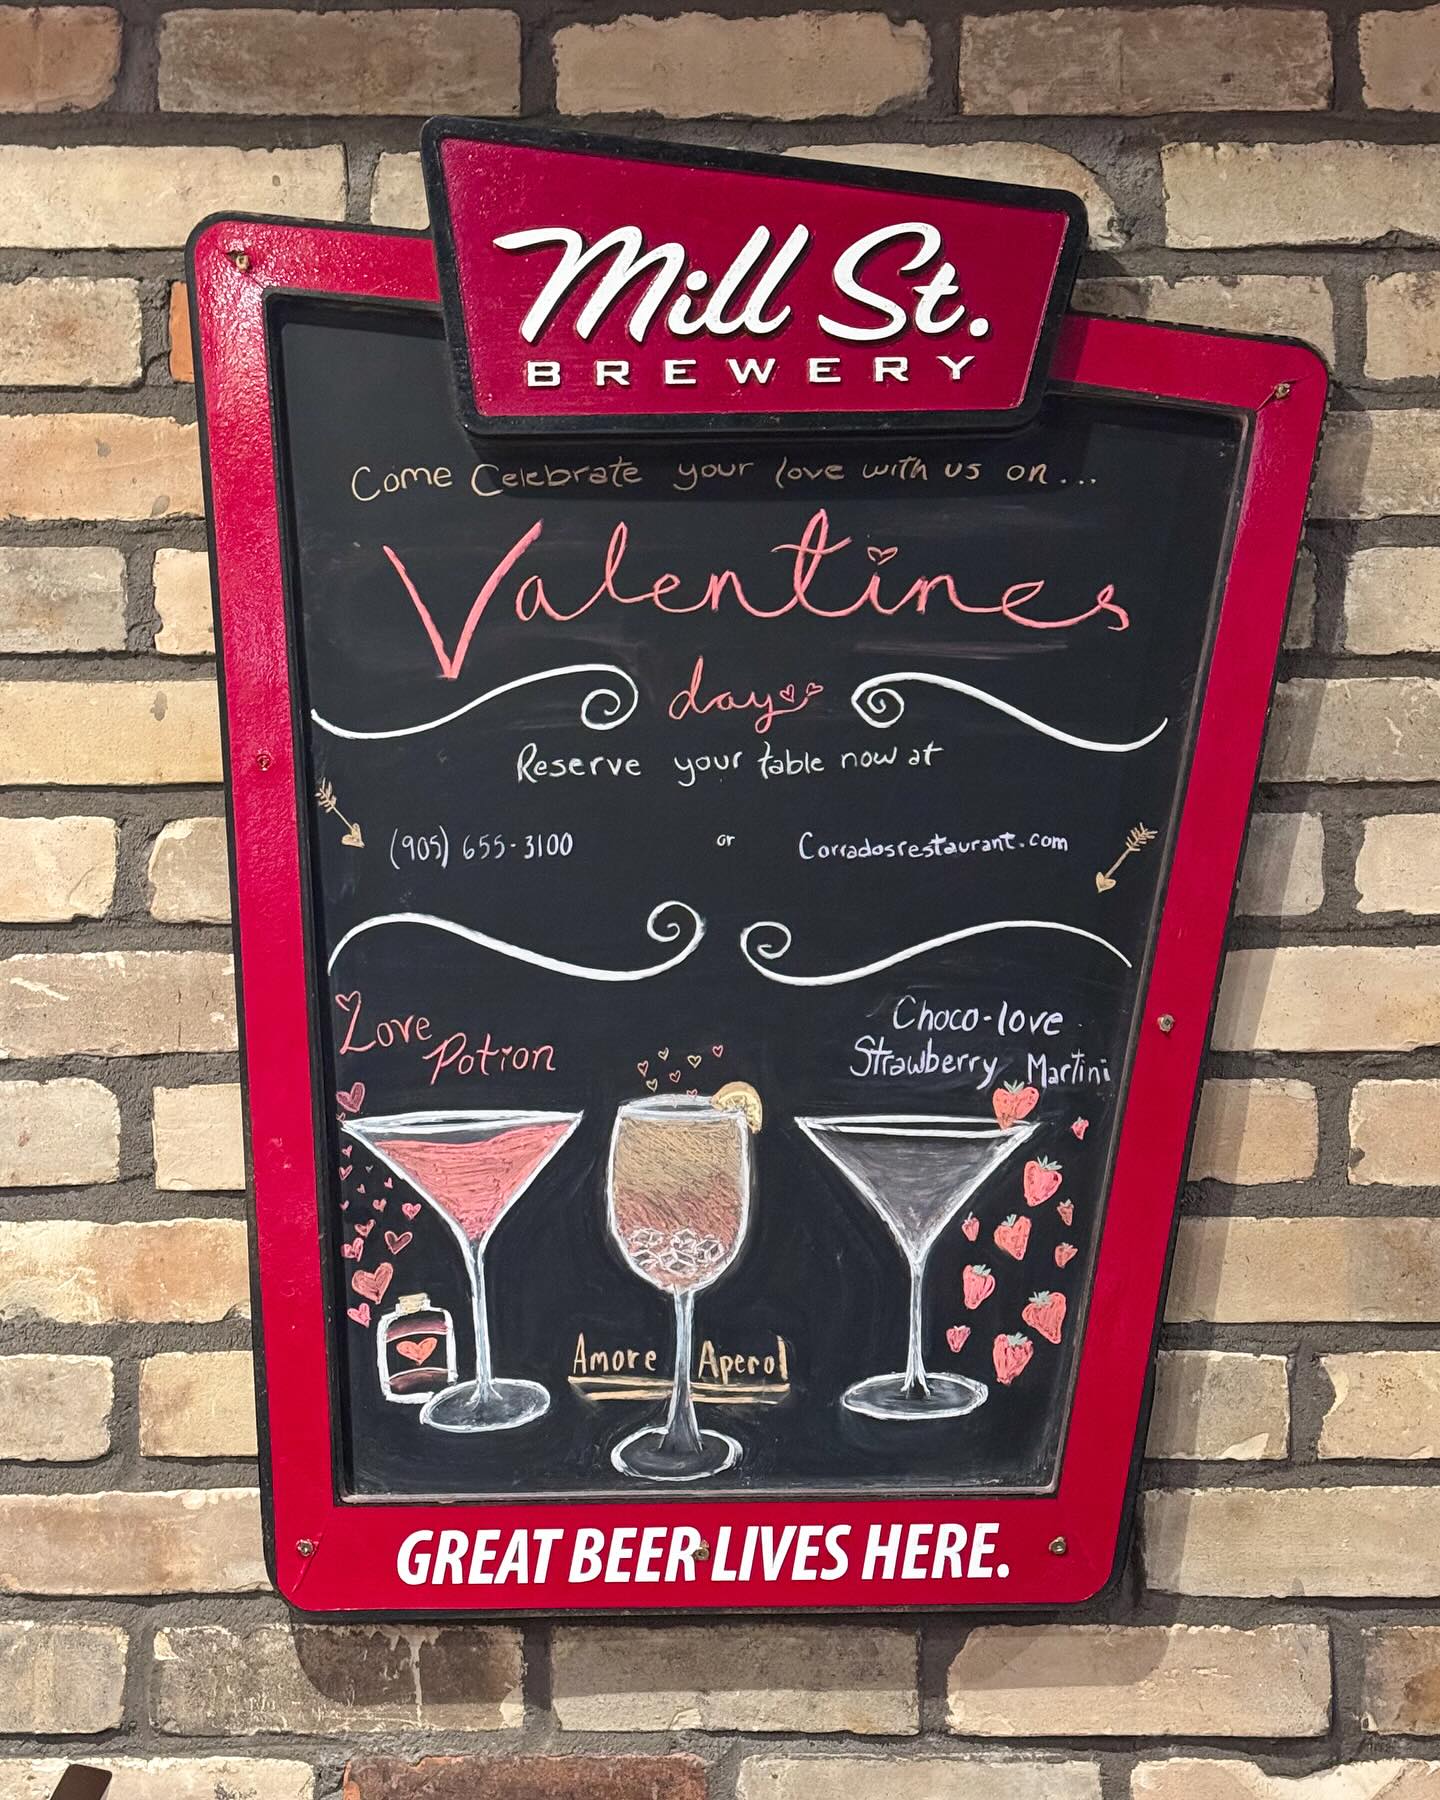 Mill St.
BREWERY
Come Celebrate your love with us on...
Valentines
day
Reserve your table now at
(905) 655-3100 or Corradosrestaurant.com
Love
Potion
Choco-love
Strawberry Martini
Amore Aperol
GREAT BEER LIVES HERE.